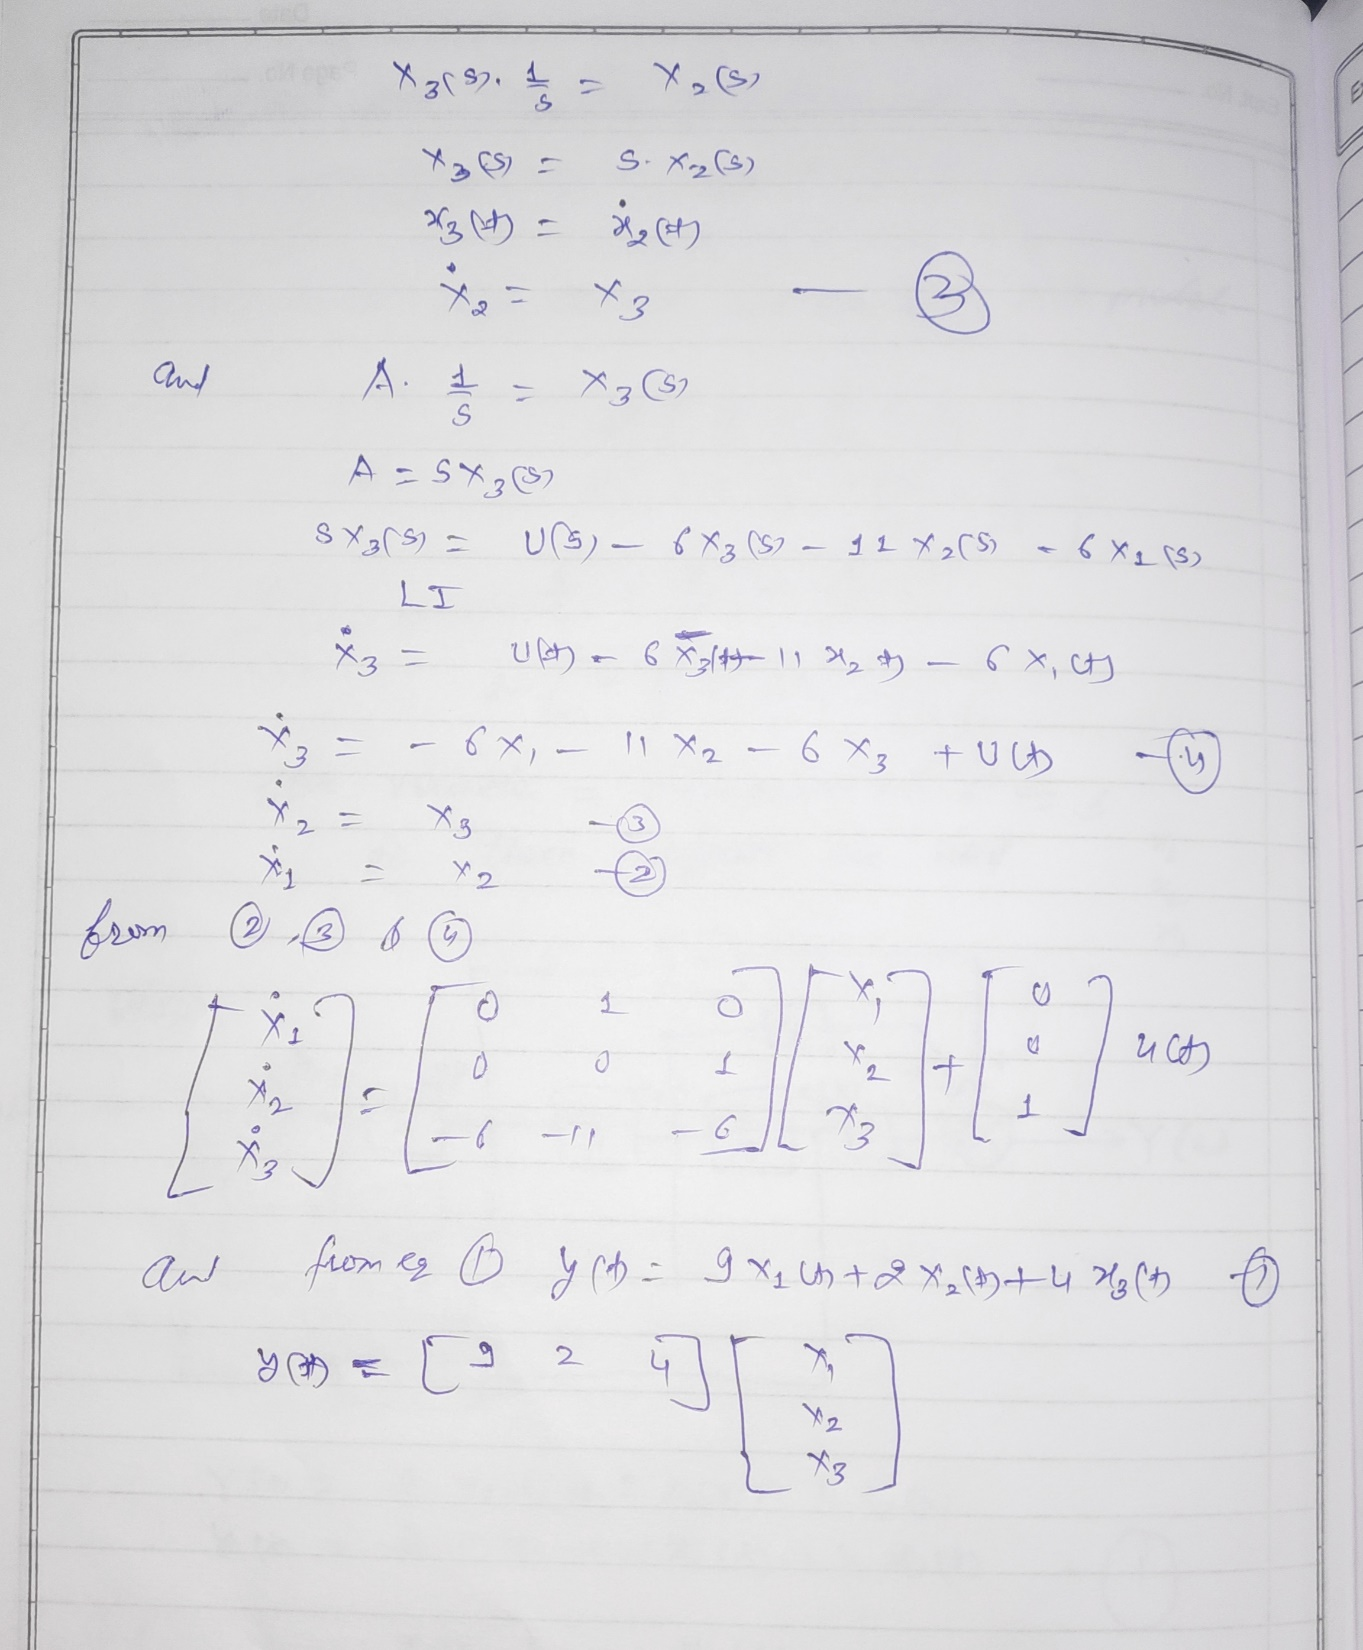 X₃(s). 1/s = X₂(s)
X₃(s) = S. X₂(s)
x₃(t) = ẋ₂(t)
ẋ₂ = x₃ — ③
and A. 1/s = X₃(s)
A = S X₃(s)
S X₃(s) = U(s) – 6 X₃(s) – 11 X₂(s) – 6 X₁(s)
LI
ẋ₃ = U(t) – 6 x₃(t) – 11 x₂(t) – 6 x₁(t)
ẋ₃ = – 6 x₁ – 11 x₂ – 6 x₃ + U(t) – ④
ẋ₂ = x₃ – ③
ẋ₁ = x₂ – ②
from ②, ③ & ④
[ẋ₁ ẋ₂ ẋ₃] = [0 1 0; 0 0 1; –6 –11 –6] [x₁ x₂ x₃] + [0 0 1] u(t)
and from eq ① y(t) = 9 x₁(t) + 2 x₂(t) + 4 x₃(t) – ①
y(t) = [9 2 4] [x₁ x₂ x₃]